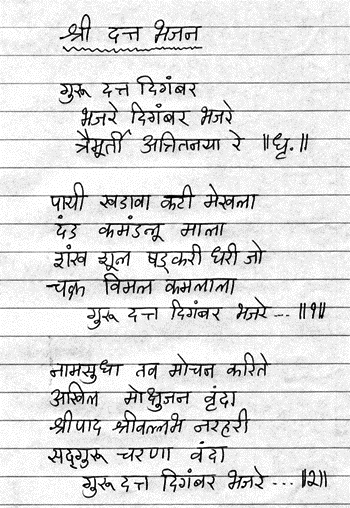 श्री दत्त भजन
गुरू दत्त दिगंबर
भजरे दिगंबर भजरे
त्रैमूर्ती अत्रितनया रे ॥धृ.॥
पायी खडावा कटी मेखला
दंड कमंडलू माला
शंख शूल षड्करी धरी जो
चक्र विमल कमलाला
गुरू दत्त दिगंबर भजरे --- ॥१॥
नामसुधा तव मोचन करिते
अखिल मोक्षुजन वृंदा
श्रीपाद श्रीवल्लभ नरहरी
सद्‌गुरू चरणा वंदा
गुरू दत्त दिगंबर भजरे --- ॥२॥